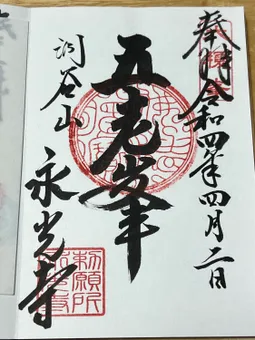 奉拝 令和四年四月二日
五老峯
洞谷山
永光寺
勅願所